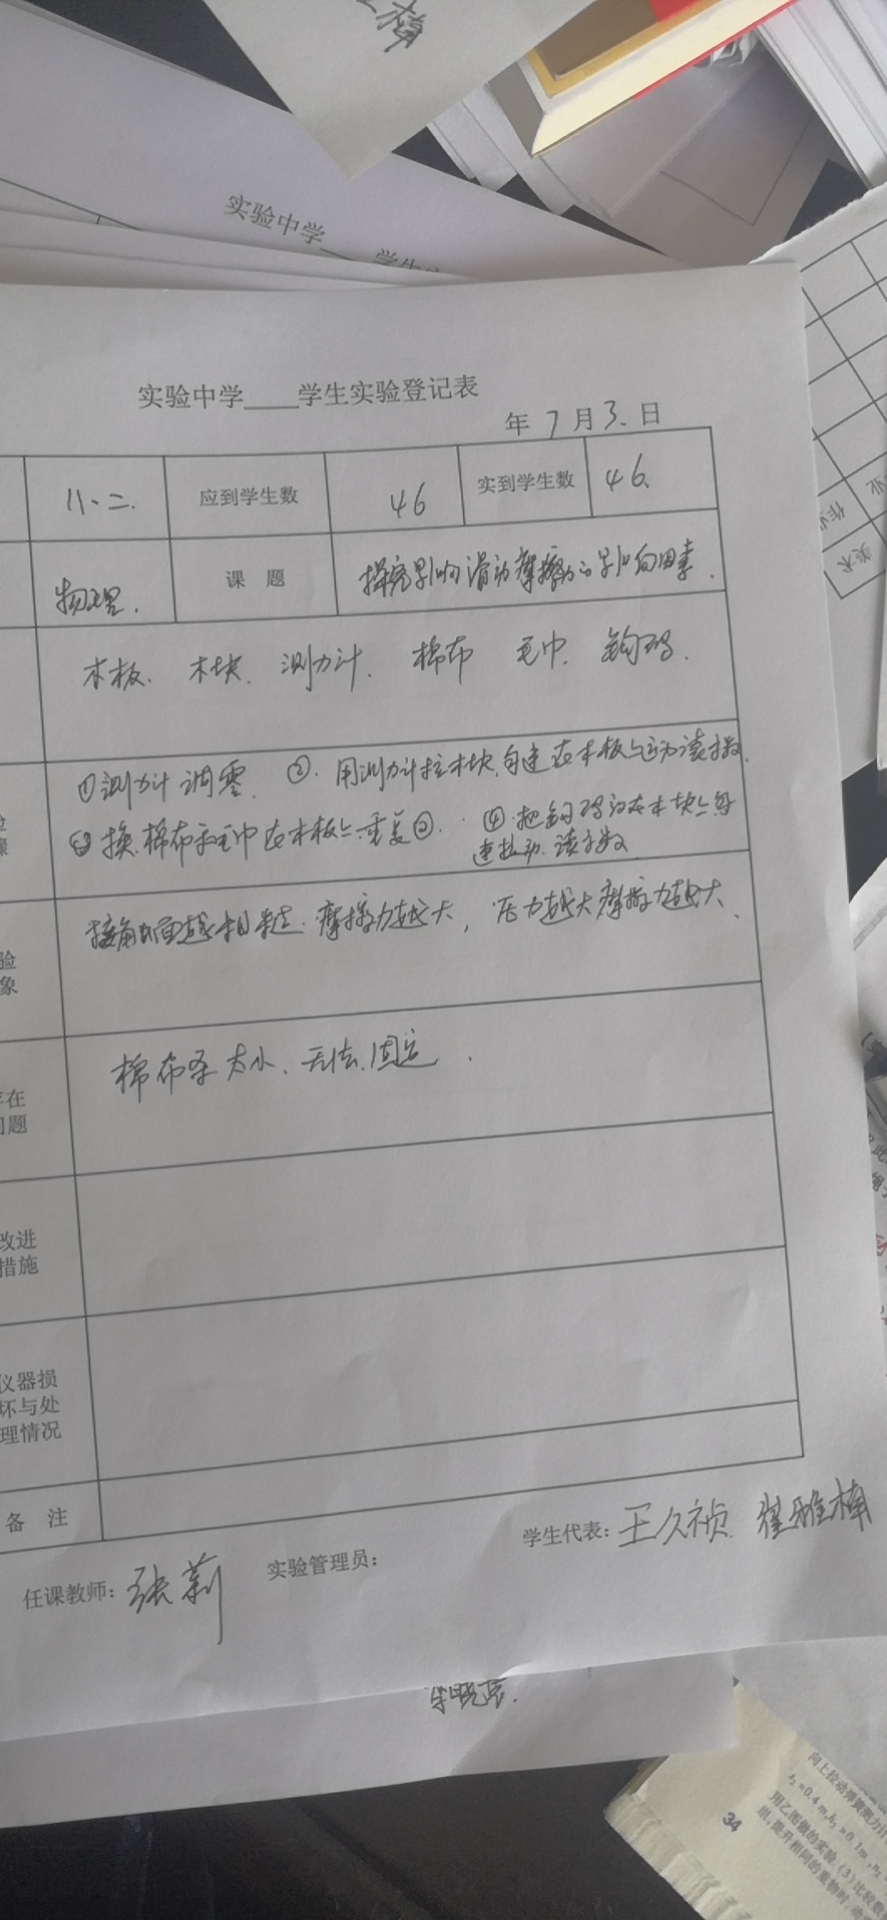 实验中学
实验中学____学生实验登记表
年 7 月 3. 日
八、二. 应到学生数 46 实到学生数 46.
物理. 课 题 探究影响滑动摩擦力的影响因素.
木板. 木块. 测力计. 棉布 毛巾. 钩码.
①测力计调零. ②. 用测力计拉木块,匀速在木板上运动读数.
③ 换棉布和毛巾在木板上重复②. ④把钩码放在木块上匀
速拉动. 读数
接触面越粗糙. 摩擦力越大, 压力越大摩擦力越大.
象
棉布条太小. 无法固定.
改进
措施
仪器损
坏与处
理情况
备 注
任课教师: 张莉 实验管理员: 学生代表: 王久祯. 崔雅楠
向上拉动弹簧测力计
用乙图做的实验
34
美术